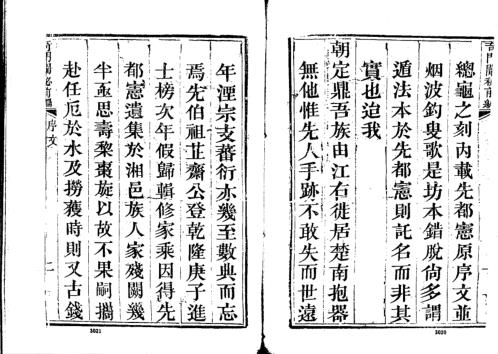 總龜之刻內載先都憲原序文並
烟波釣叟歌是坊本錯脫尙多謂
遁法本於先都憲則託名而非其
實也迨我
朝定鼎吾族由江右徙居楚南抱器
無他惟先人手跡不敢失而世遠
年湮宗支蕃衍亦幾至數典而忘
焉先伯祖芷齋公登乾隆庚子進
士榜次年假歸輯修家乘因得先
都憲遺集於湘邑族人家殘闕幾
半亟思壽棃棗旋以故不果嗣攜
赴任厄於水及撈獲時則又古錢
序文
二
3021
3020